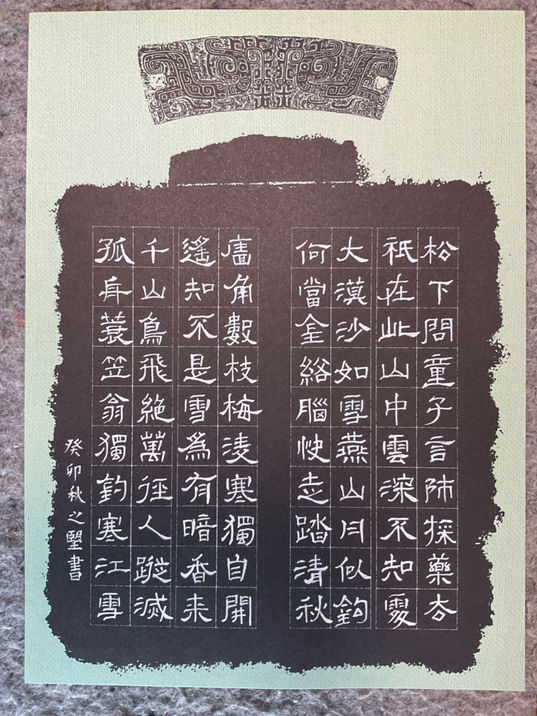 松下問童子言師採藥去
祇在此山中雲深不知處
大漠沙如雪燕山月似鈎
何當金絡腦快走踏清秋
墻角數枝梅凌寒獨自開
遙知不是雪為有暗香来
千山鳥飛絶萬徑人蹤滅
孤舟蓑笠翁獨釣寒江雪
癸卯秋之堅書